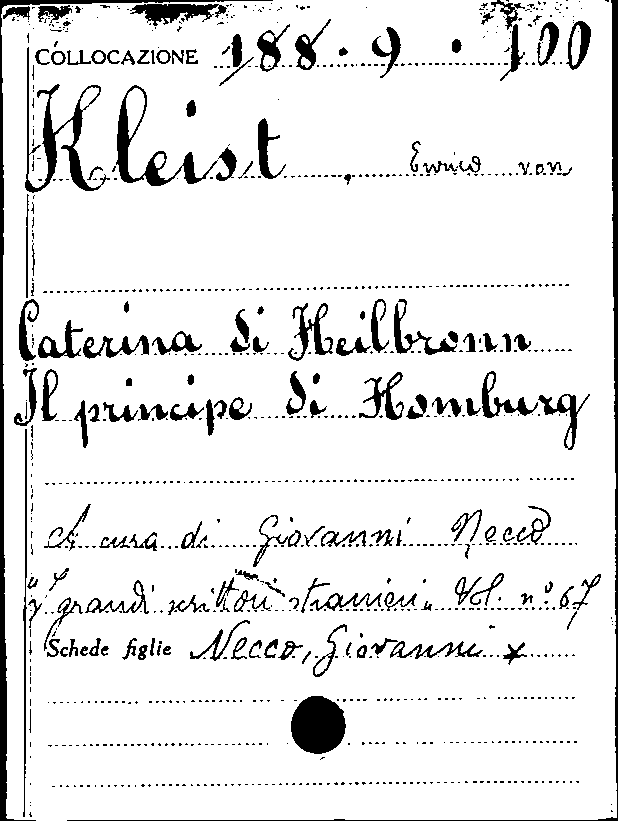 COLLOCAZIONE 188 . 9 . 100
Kleist , Enrico von
Caterina di Heilbronn
Il principe di Homburg
A cura di Giovanni Necco
"I grandi scrittori stranieri" Vol. n° 67
Schede figlie Necco, Giovanni x